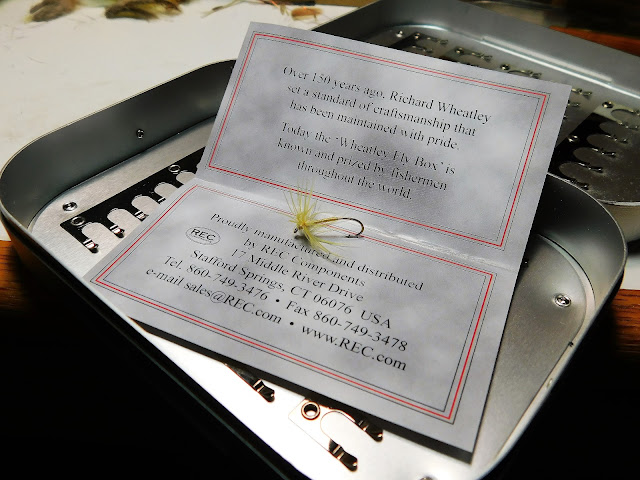 Over 150 years ago, Richard Wheatley
set a standard of craftsmanship that
has been maintained with pride.
Today the "Wheatley Fly Box" is
known and prized by fishermen
throughout the world.
Proudly manufactured and distributed
REC
by REC Components
17 Middle River Drive
Stafford Springs, CT 06076 USA
Tel. 860-749-3476 • Fax 860-749-3478
e-mail sales@REC.com • www.REC.com